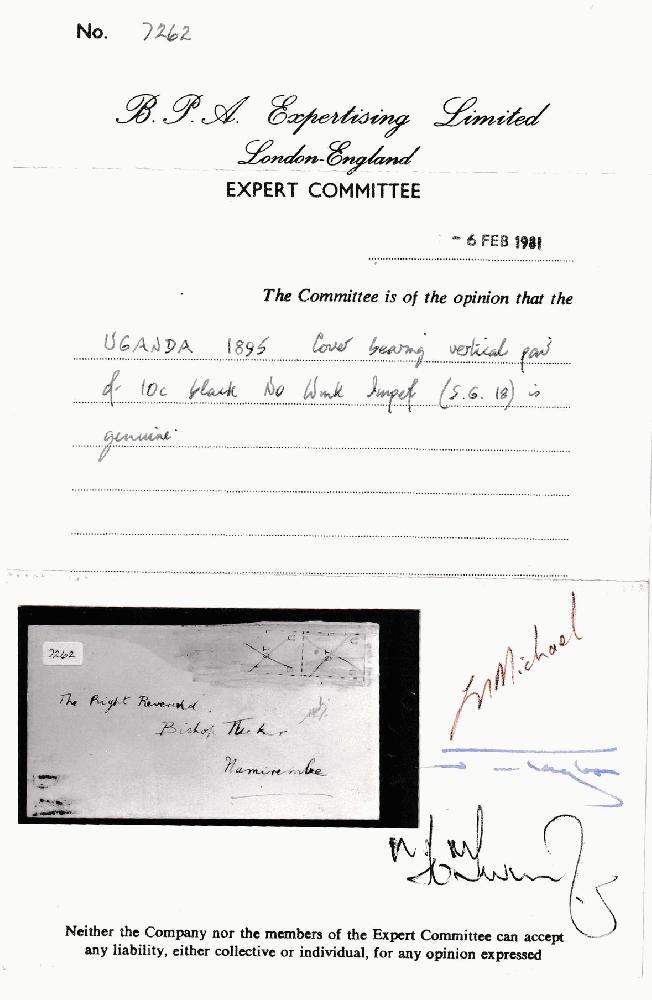 No. 7262
B. P. A. Expertising Limited
London-England
EXPERT COMMITTEE
- 6 FEB 1981
The Committee is of the opinion that the
UGANDA 1895 Cover bearing vertical pair
of 10c black No Wmk Imperf (S.G. 18) is
genuine.
7262
The Right Reverend
Bishop Tucker
Namirembe
Michael
Neither the Company nor the members of the Expert Committee can accept
any liability, either collective or individual, for any opinion expressed